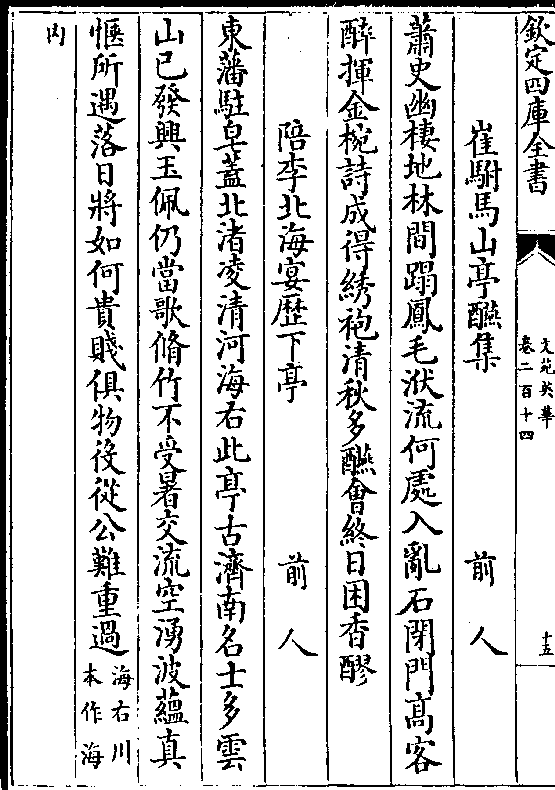 欽定四庫全書
文苑英華
卷二百十四
十五
崔駙馬山亭醼集 前人
蕭史幽棲地林間蹋鳳毛洑流何處入亂石閉門髙客
醉揮金椀詩成得綉袍清秋多醼會終日困香醪
陪李北海宴歴下亭 前人
東藩駐皁蓋北渚凌清河海右此亭古濟南名士多雲
山已發興玉佩仍當歌脩竹不受暑交流空湧波蘊真
愜所遇落日將如何貴賤俱物役從公難重過
海右川
本作海
内